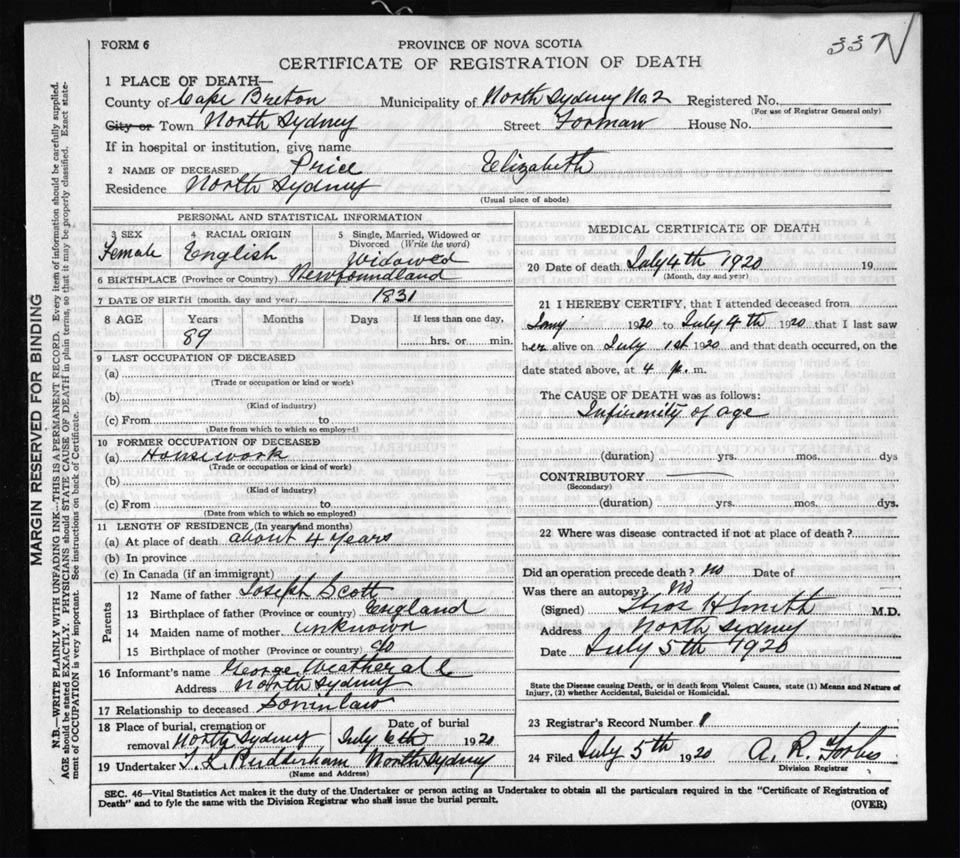 FORM 6
PROVINCE OF NOVA SCOTIA
337
CERTIFICATE OF REGISTRATION OF DEATH
1 PLACE OF DEATH—
County of Cape Breton Municipality of North Sydney No. 2 Registered No.
(For use of Registrar General only)
City or Town North Sydney Street Forman House No.
If in hospital or institution, give name
2 NAME OF DECEASED Price Elizabeth
Residence North Sydney
(Usual place of abode)
PERSONAL AND STATISTICAL INFORMATION
3 SEX 4 RACIAL ORIGIN 5 Single, Married, Widowed or
Divorced (Write the word)
Female English Widowed
6 BIRTHPLACE (Province or Country) Newfoundland
7 DATE OF BIRTH (month, day and year) 1831
8 AGE Years Months Days If less than one day,
89 hrs. or min.
9 LAST OCCUPATION OF DECEASED
(a)
(Trade or occupation or kind of work)
(b)
(Kind of industry)
(c) From to
(Date from which to which so employed)
10 FORMER OCCUPATION OF DECEASED
(a) Housework
(Trade or occupation or kind of work)
(b)
(Kind of industry)
(c) From to
(Date from which to which so employed)
11 LENGTH OF RESIDENCE (In years and months)
(a) At place of death about 4 years
(b) In province
(c) In Canada (if an immigrant)
Parents
12 Name of father Joseph Scott
13 Birthplace of father (Province or country) England
14 Maiden name of mother unknown
15 Birthplace of mother (Province or country) do
16 Informant's name George Weatherall
Address North Sydney
17 Relationship to deceased Soninlaw
18 Place of burial, cremation or Date of burial
removal North Sydney July 6th 1920
19 Undertaker T. L. Rudderham North Sydney
(Name and Address)
MEDICAL CERTIFICATE OF DEATH
20 Date of death July 4th 1920 19
(Month, day and year)
21 I HEREBY CERTIFY, that I attended deceased from
1920 to July 4th 1920 that I last saw
her alive on July 1st 1920 and that death occurred, on the
date stated above, at 4 p. m.
The CAUSE OF DEATH was as follows:
Infirmity of age
(duration) yrs. mos. dys
CONTRIBUTORY
(Secondary)
(duration) yrs. mos. dys.
22 Where was disease contracted if not at place of death?
Did an operation precede death? no Date of
Was there an autopsy? no
(Signed) Thos H Smith M.D.
Address North Sydney
Date July 5th 1920
State the Disease causing Death, or in death from Violent Causes, state (1) Means and Nature of
Injury, (2) whether Accidental, Suicidal or Homicidal.
23 Registrar's Record Number 1
24 Filed July 5th 1920 A. R. Forbes
Division Registrar
SEC. 46—Vital Statistics Act makes it the duty of the Undertaker or person acting as Undertaker to obtain all the particulars required in the "Certificate of Registration of
Death" and to fyle the same with the Division Registrar who shall issue the burial permit.
(OVER)
MARGIN RESERVED FOR BINDING
N.B.—WRITE PLAINLY WITH UNFADING INK—THIS IS A PERMANENT RECORD. Every item of information should be carefully supplied.
AGE should be stated EXACTLY. PHYSICIANS should STATE CAUSE OF DEATH in plain terms, so that it may be properly classified. Exact state-
ment of OCCUPATION is very important. See instructions on back of Certificate.